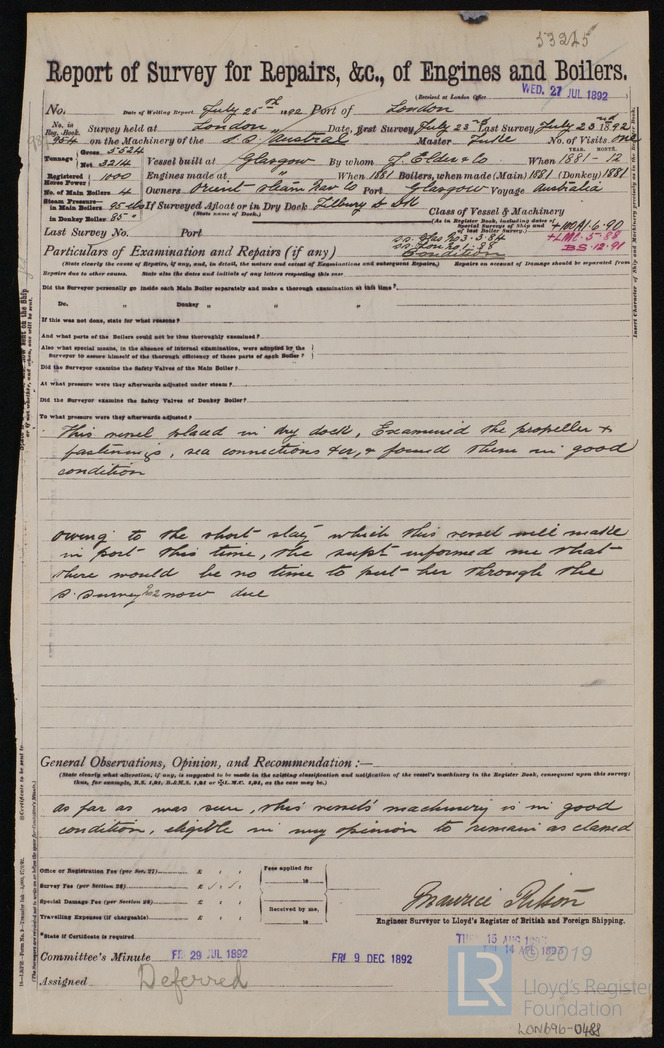 53245
Report of Survey for Repairs, &c., of Engines and Boilers.
(Received at London Office
WED. 27 JUL 1892
No. Date of Writing Report July 25th 1892 Port of London
No. in Reg. Book. 954 Survey held at London Date, first Survey July 23rd Last Survey July 23rd 1892
on the Machinery of the S.S. "Austral" Master No. of Visits One
Tonnage Gross 5524 Net 3214 Vessel built at Glasgow By whom J. Elder & Co When 1881-12
YEAR. MONTH.
Registered Horse Power 1000 Engines made at " When 1881 Boilers, when made (Main) 1881 (Donkey) 1881
No. of Main Boilers 4 Owners Orient Steam Nav Co Port Glasgow Voyage Australia
Steam Pressure in Main Boilers 95 lbs If Surveyed Afloat or in Dry Dock Tilbury D Dk
in Donkey Boiler 85 " (State name of Dock.)
Class of Vessel & Machinery
(As in Register Book, including dates of Special Surveys of Ship and of last Boiler Survey.)
Last Survey No. Port
SS. Glas No3-3.84
SS. Lon No1-88
+LMC.5.88
BS.12.91
Particulars of Examination and Repairs (if any) Condition
Repairs on account of Damage should be separated from
(State clearly the cause of Repairs, if any, and, in detail, the nature and extent of Examinations and subsequent Repairs.)
Repairs due to other causes. State also the dates and initials of any letters respecting this case
Did the Surveyor personally go inside each Main Boiler separately and make a thorough examination at this time?
Do. " Donkey " " "
If this was not done, state for what reasons?
And what parts of the Boilers could not be thus thoroughly examined?
Also what special means, in the absence of internal examination, were adopted by the
Surveyor to assure himself of the thorough efficiency of those parts of each Boiler?
Did the Surveyor examine the Safety Valves of the Main Boiler?
At what pressure were they afterwards adjusted under steam?
Did the Surveyor examine the Safety Valves of Donkey Boiler?
To what pressure were they afterwards adjusted?
This vessel placed in dry dock, Examined the propeller &
fastenings, sea connections &c, & found them in good
condition
Owing to the short stay which this vessel will make
in port this time, the supt informed me that
there would be no time to put her through the
S. Survey No2 now due
General Observations, Opinion, and Recommendation :—
(State clearly what alteration, if any, is suggested to be made in the existing classification and notification of the vessel's machinery in the Register Book, consequent upon this survey:
as far as was seen, this vessel's machinery is in good
condition, eligible in my opinion to remain as classed
Office or Registration Fee (per Sec. 27) £ : :
Fees applied for
18
Survey Fee (per Section 28) £
Special Damage Fee (per Section 28) £ : :
Received by me,
18
Travelling Expenses (if chargeable) £ : :
Maurice
Engineer Surveyor to Lloyd's Register of British and Foreign Shipping.
*State if Certificate is required
Committee's Minute FRI 29 JUL 1892 FRI 9 DEC 1892
14 APR 1893
Assigned Deferred
LR
© 2019
Lloyd's Register
Foundation
LON696-0488